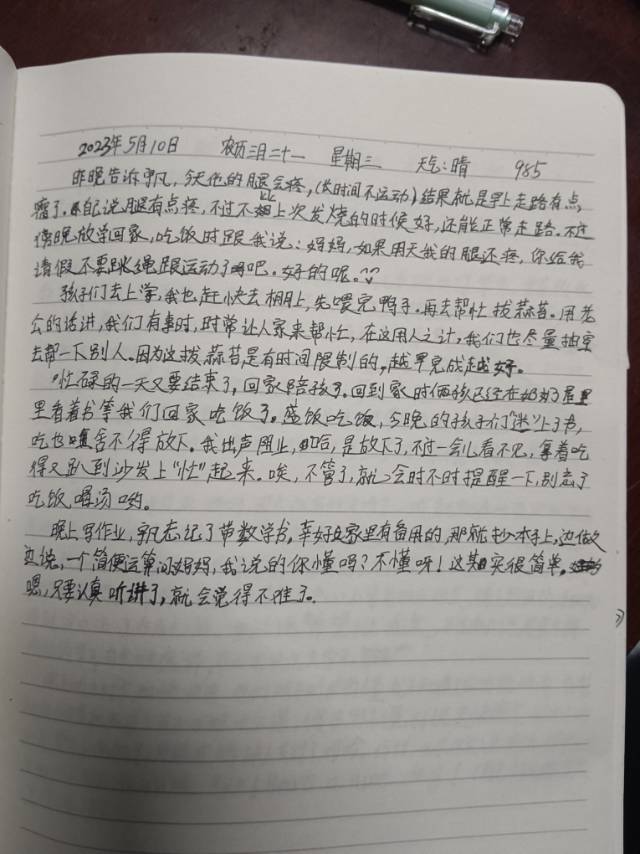 2023年5月10日 农历三月二十一 星期三 天气:晴 985
昨晚告诉凡,今天他的腿会疼,(长时间不运动)结果就是早上走路有点
瘸了。自己说腿有点疼,不过不比上次发烧的时候好,还能正常走路。不过
傍晚放学回家,吃饭时跟我说:妈妈,如果明天我的腿还疼,你给我
请假不要跳绳跟运动了吧。好的呢。
孩子们去上学,我也赶快去棚上,先喂完鸭子。再去帮忙拔蒜苔。用老
公的话讲,我们有事时,时常让人家来帮忙,在这用人之计,我们也尽量抽空
去帮一下别人。因为这拔蒜苔是有时间限制的,越早完成越好。
忙碌的一天又要结束了,回家陪孩子。回到家时俩孩已经在奶奶屋
里看着书等我们回家吃饭了。盛饭吃饭,今晚的孩子们"迷"上了书,
吃也舍不得放下。我出声阻止,哈哈,是放下了,不过一会儿看不见,拿着吃
得又趴到沙发上"忙"起来。唉,不管了,就会时不时提醒一下,别忘了
吃饭喝汤哟。
晚上写作业,凡忘记了带数学书,幸好家里有备用的,那就抄本子上,边做
边说,一个简便运算问妈妈,我说的你懂吗?不懂呀!这其实很简单。
嗯,只要认真听讲了,就会觉得不难了。